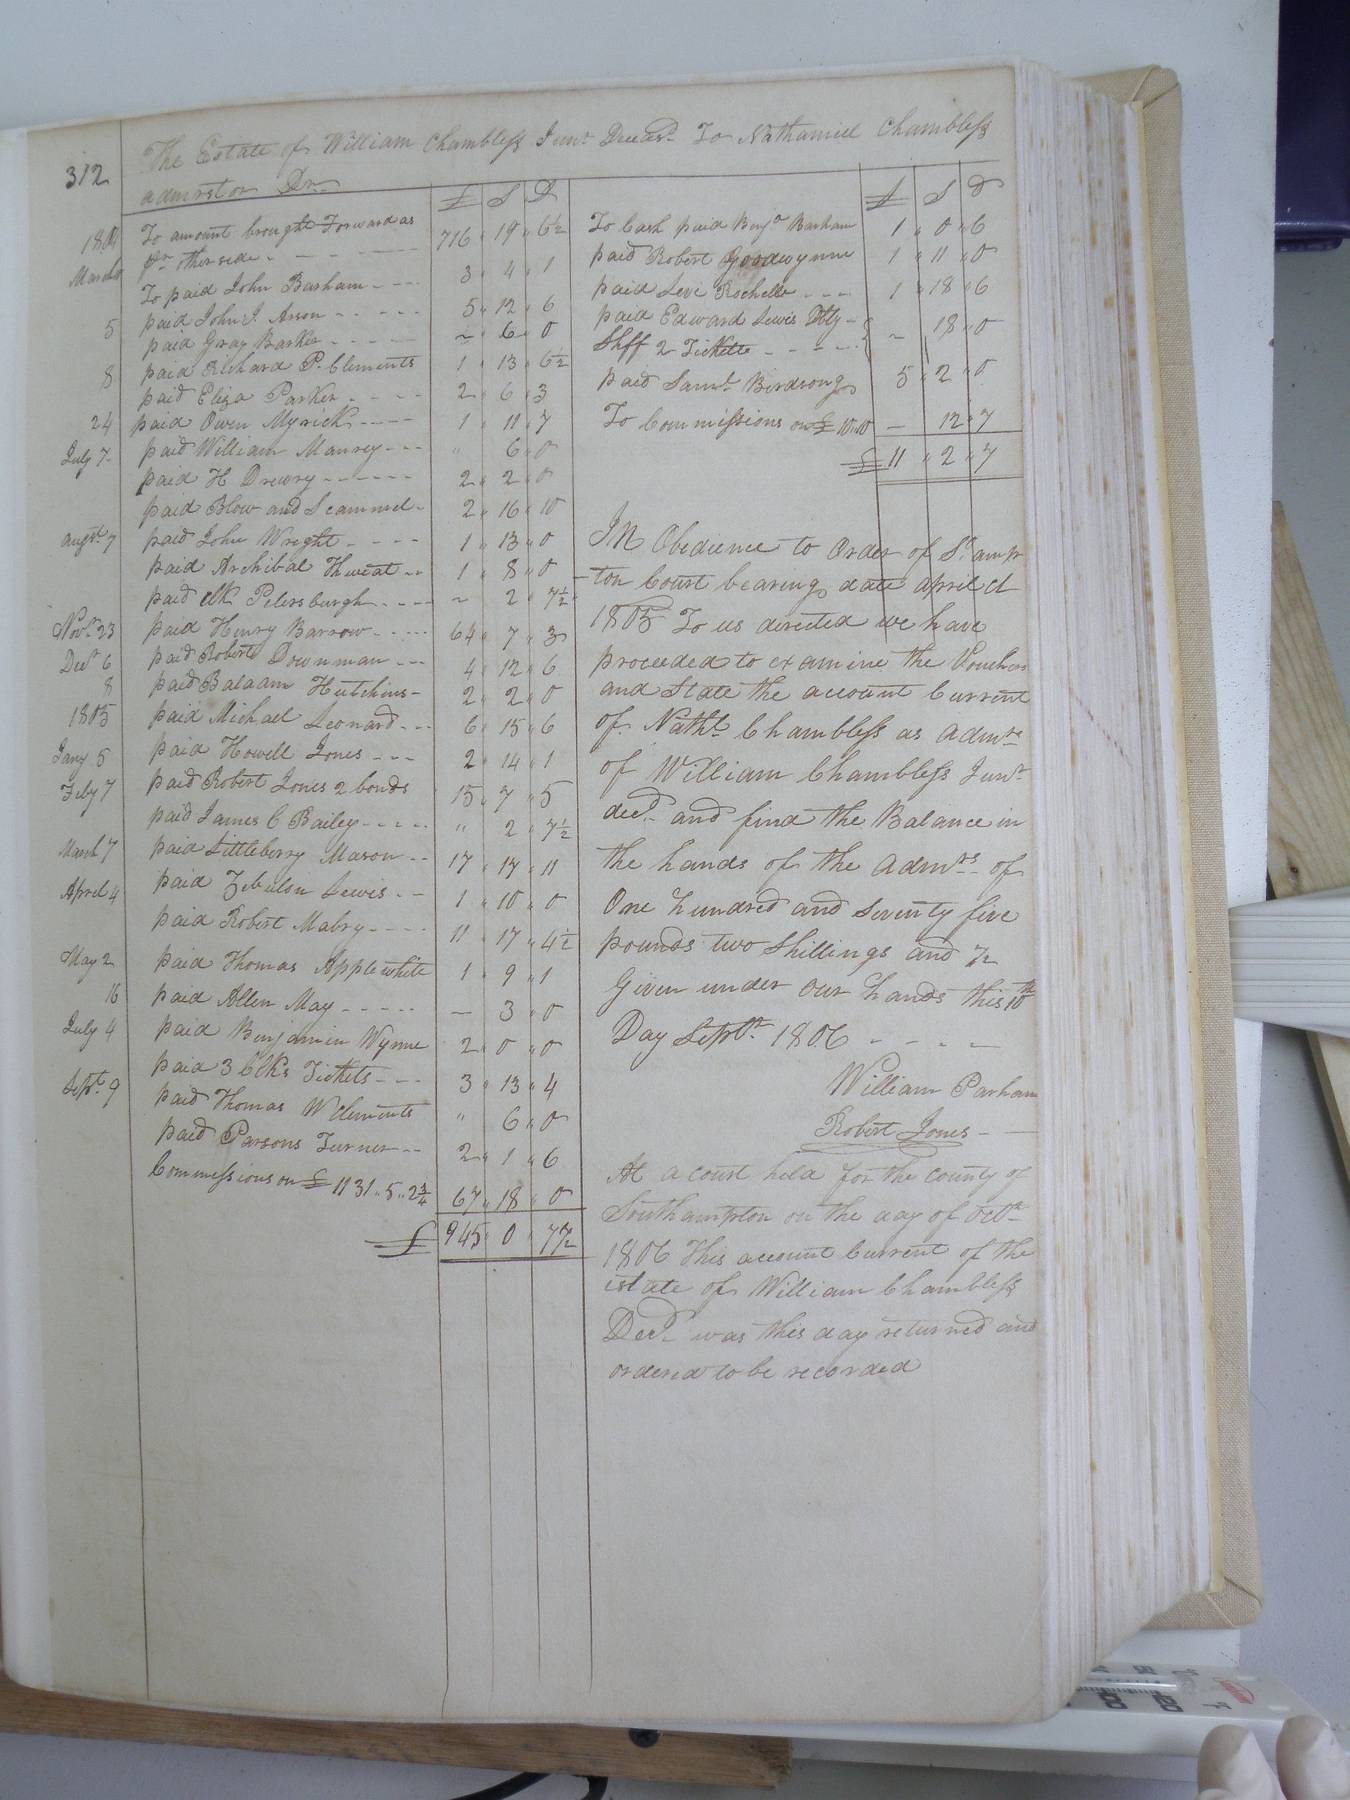 312
The Estate of William Chambless Junr Decasd To Nathaniel Chambless
admrstor Dr
£ S D
1804 To amount brought Forward as
pr otherside - - - 716 " 19 " 6½
March To paid John Barham - - - 3 " 4 " 1
5 paid John J. Arson - - - - - 5 " 12 " 6
paid Gray Barker - - - - - ~ " 6 " 0
8 paid Richard P. Clements 1 " 13 " 6½
paid Eliza Parker - - - - 2 " 6 " 3
24 paid Owen Myrick - - - - 1 " 11 " 7
July 7 paid William Manrey - - - " 6 " 0
paid H Drewry - - - - - - 2 " 2 " 0
paid Blow and Scammel - 2 " 16 " 10
augst 7 paid John Wright - - - - 1 " 13 " 0
paid Archibal Thweat - - 1 " 8 " 0
paid Petersburgh - - - - ~ 2 " 7½
Novr 23 paid Henry Barrow - - - - 64 " 7 " 3
Decr 6 paid Roberts Downman - - - 4 " 12 " 6
8 paid Balaam Hutchins - 2 " 2 " 0
1805 paid Michael Leonard - - - 6 " 15 " 6
Jany 5 paid Howell Jones - - - 2 " 14 " 1
Feby 7 paid Robert Jones 2 bonds 15 " 7 " 5
paid James C Bailey - - - - " 2 " 7½
March 7 paid Littleberry Mason - - 17 " 17 " 11
April 4 paid Zebulin Lewis - - 1 " 10 " 0
paid Robert Mabry - - - - 11 " 17 " 4½
May 2 paid Thomas Applewhite 1 " 9 " 1
16 paid Allen May - - - - - — 3 " 0
July 4 paid Benjamin Wynne 2 " 0 " 0
paid 3 Clks Tickets - - - 3 " 13 " 4
Septr 9 paid Thomas W Clements " 6 " 0
paid Parsons Turner - - 2 " 1 " 6
Commissions on £ 1131 " 5 " 2¾ 67 " 18 " 0
£ 945 " 0 " 7½
£ S D
To Cash paid Benja Barham 1 " 0 " 6
paid Robert Goodwynne 1 " 11 " 0
paid Levi Rochelle - - - 1 " 18 " 6
paid Edward Lewis Dty -
Shff 2 Tickette - - - - ~ 18 " 0
paid Saml Birdsong 5 " 2 " 0
To Commissions on £ 10 " 10 — 12 " 7
£ 11 " 2 " 7
IN Obedience to Order of So ampr
ton Court bearing date april Ct
1805 To us directed we have
proceeded to examine the Vouchers
and State the account Current
of Nathl Chambless as Admrs
of William Chambless Junr
decd and find the Balance in
the hands of the Admrs of
One hundred and Seventy five
pounds two Shillings and 7½
Given under our hands this 10th
Day Septr 1806 - - - -
William Parham
Robert Jones -
At a court held for the county of
Southampton on the day of Octr
1806 This account Current of the
istate of William Chambless
Decd was this day returned and
ordered to be recorded